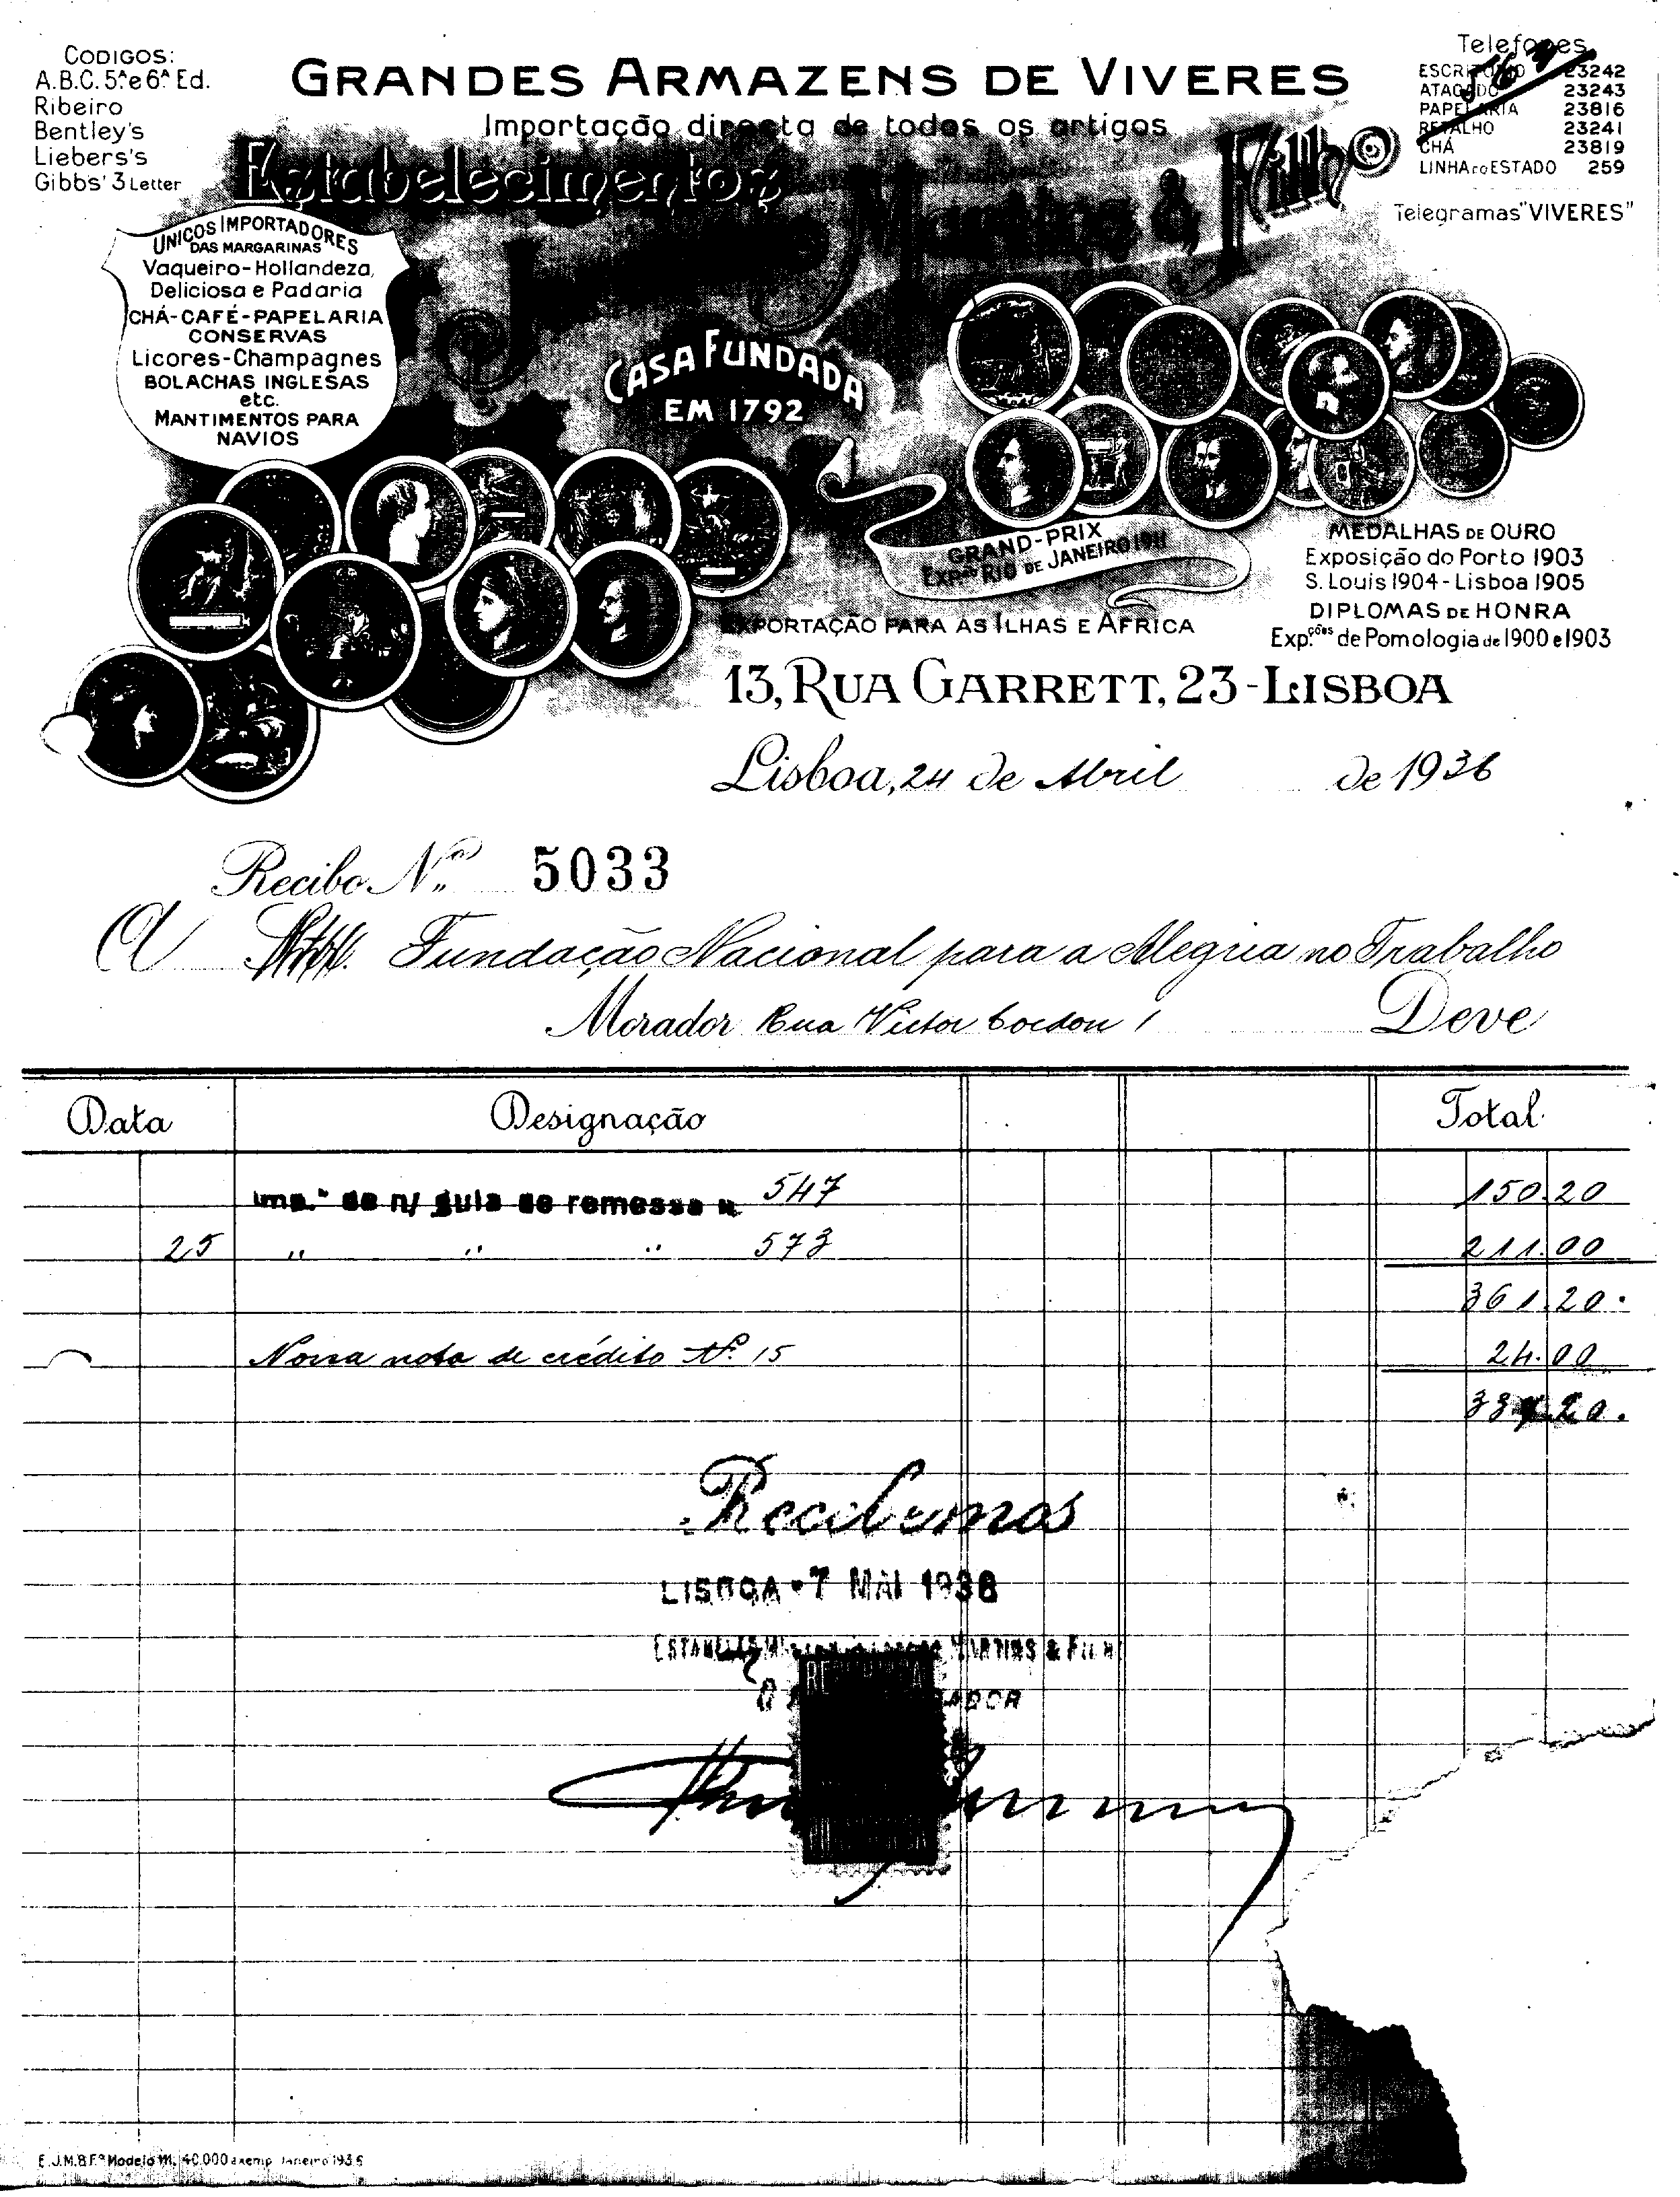 CODIGOS:
A.B.C. 5ª e 6ª Ed.
Ribeiro
Bentley's
Liebers's
Gibbs' 3 Letter
GRANDES ARMAZENS DE VIVERES
Importação directa de todos os artigos
Estabelecimentos
Martins & Filho
Telefones
ESCRITORIO 23242
ATACADO 23243
PAPELARIA 23816
RETALHO 23241
CHÁ 23819
LINHA DO ESTADO 259
Telegramas "VIVERES"
UNICOS IMPORTADORES
DAS MARGARINAS
Vaqueiro-Hollandeza,
Deliciosa e Padaria
CHÁ-CAFÉ-PAPELARIA
CONSERVAS
Licores-Champagnes
BOLACHAS INGLESAS
etc.
MANTIMENTOS PARA
NAVIOS
CASA FUNDADA
EM 1792
GRAND-PRIX
EXPÇÃO RIO DE JANEIRO 1911
MEDALHAS DE OURO
Exposição do Porto 1903
S. Louis 1904 - Lisboa 1905
DIPLOMAS DE HONRA
Exp.ções de Pomologia de 1900 e 1903
EXPORTAÇÃO PARA AS ILHAS E AFRICA
13, RUA GARRETT, 23-LISBOA
Lisboa, 24 de Abril de 1936
Recibo N.º 5033
A Fundação Nacional para a Alegria no Trabalho
Morador Rua Victor Cordon 1 Deve
Data Designação Total
Imp.ª de n/ guia de remessa n. 547 150.20
25 " " " 573 211.00
361.20.
Nossa nota de crédito Nº 15 24.00
337.20.
Recebemos
LISBOA - 7 MAI 1936
MARTINS & FILHO
E.J.M.& F.º Modelo 111. 40.000 exemp. Janeiro 1936